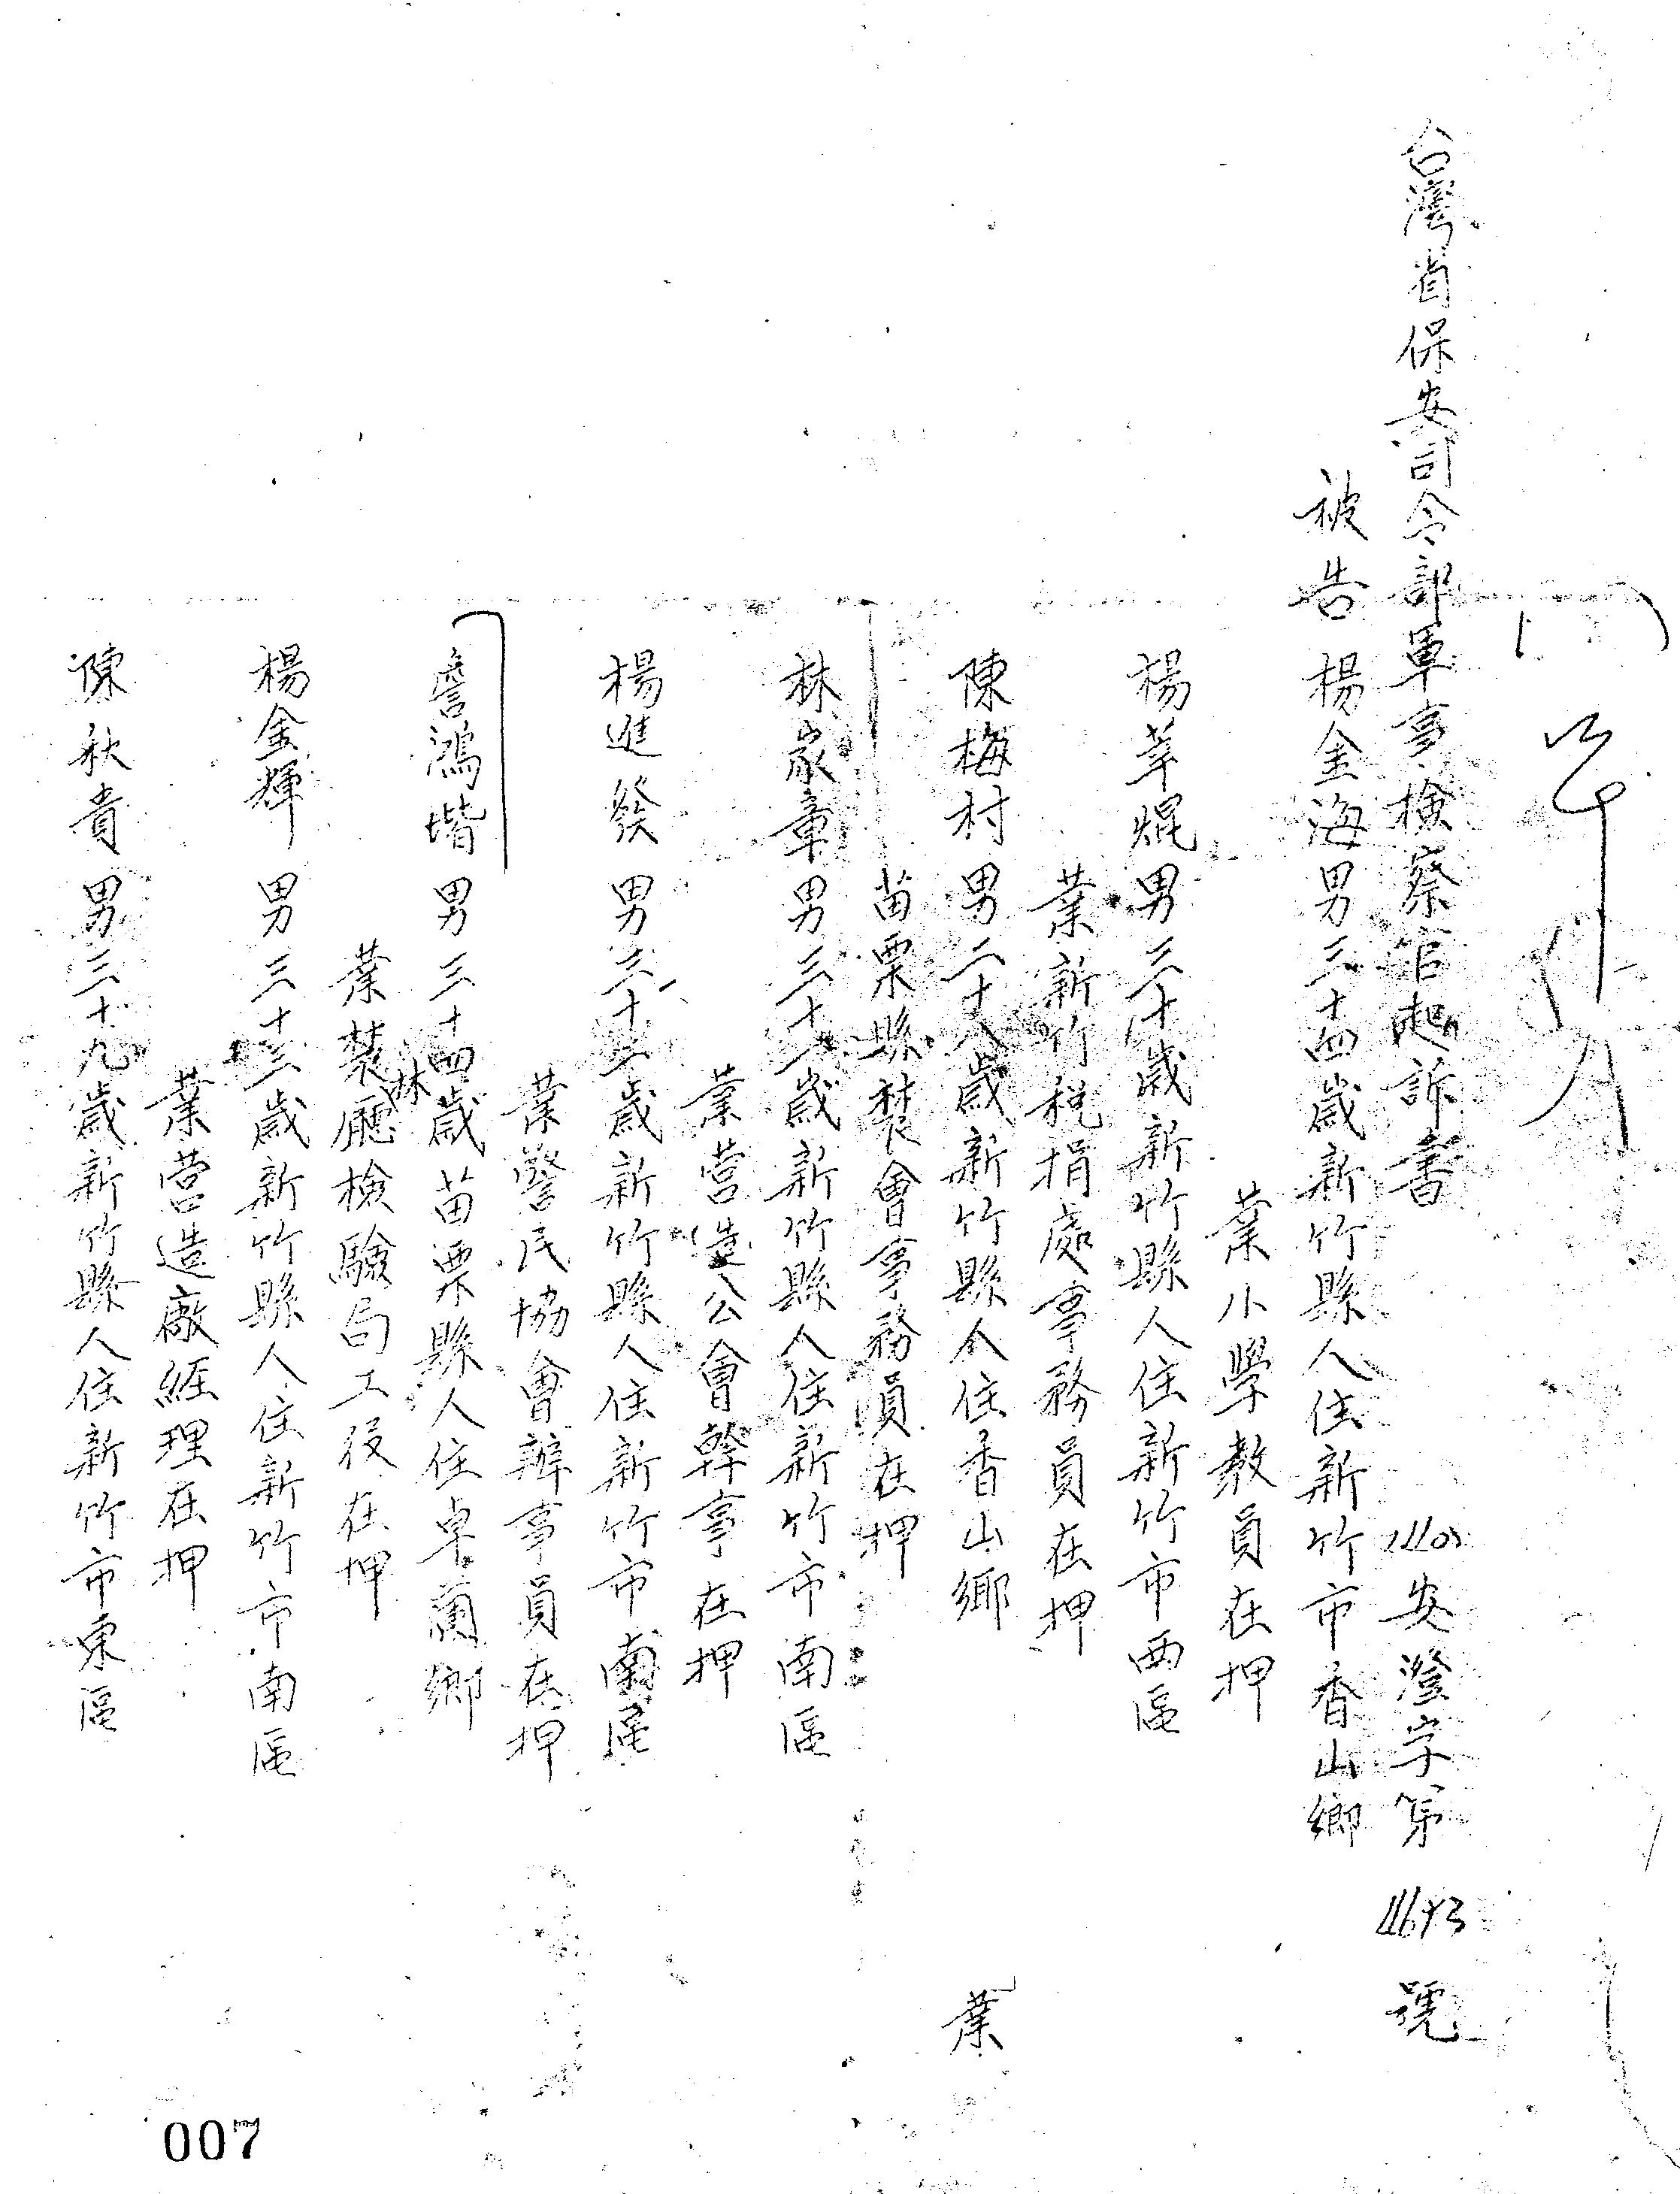 台灣省保安司令部軍事檢察官起訴書 安澄字第 號
被告 楊金海男三十四歲新竹縣人住新竹市香山鄉
業小學教員在押
楊萃焜男三十歲新竹縣人住新竹市西區
業新竹稅捐處事務員在押
陳梅村男二十八歲新竹縣人住香山鄉 業
苗栗縣農會事務員在押
林家章男三十 歲新竹縣人住新竹市南區
業營造公會幹事在押
楊進發男三十 歲新竹縣人住新竹市南區
業警民協會辦事員在押
詹鴻堦男三十四歲苗栗縣人住卓蘭鄉
業農林廳檢驗局工役在押
楊金輝男三十三歲新竹縣人住新竹市南區
業營造廠經理在押
陳秋貴男三十九歲新竹縣人住新竹市東區
007